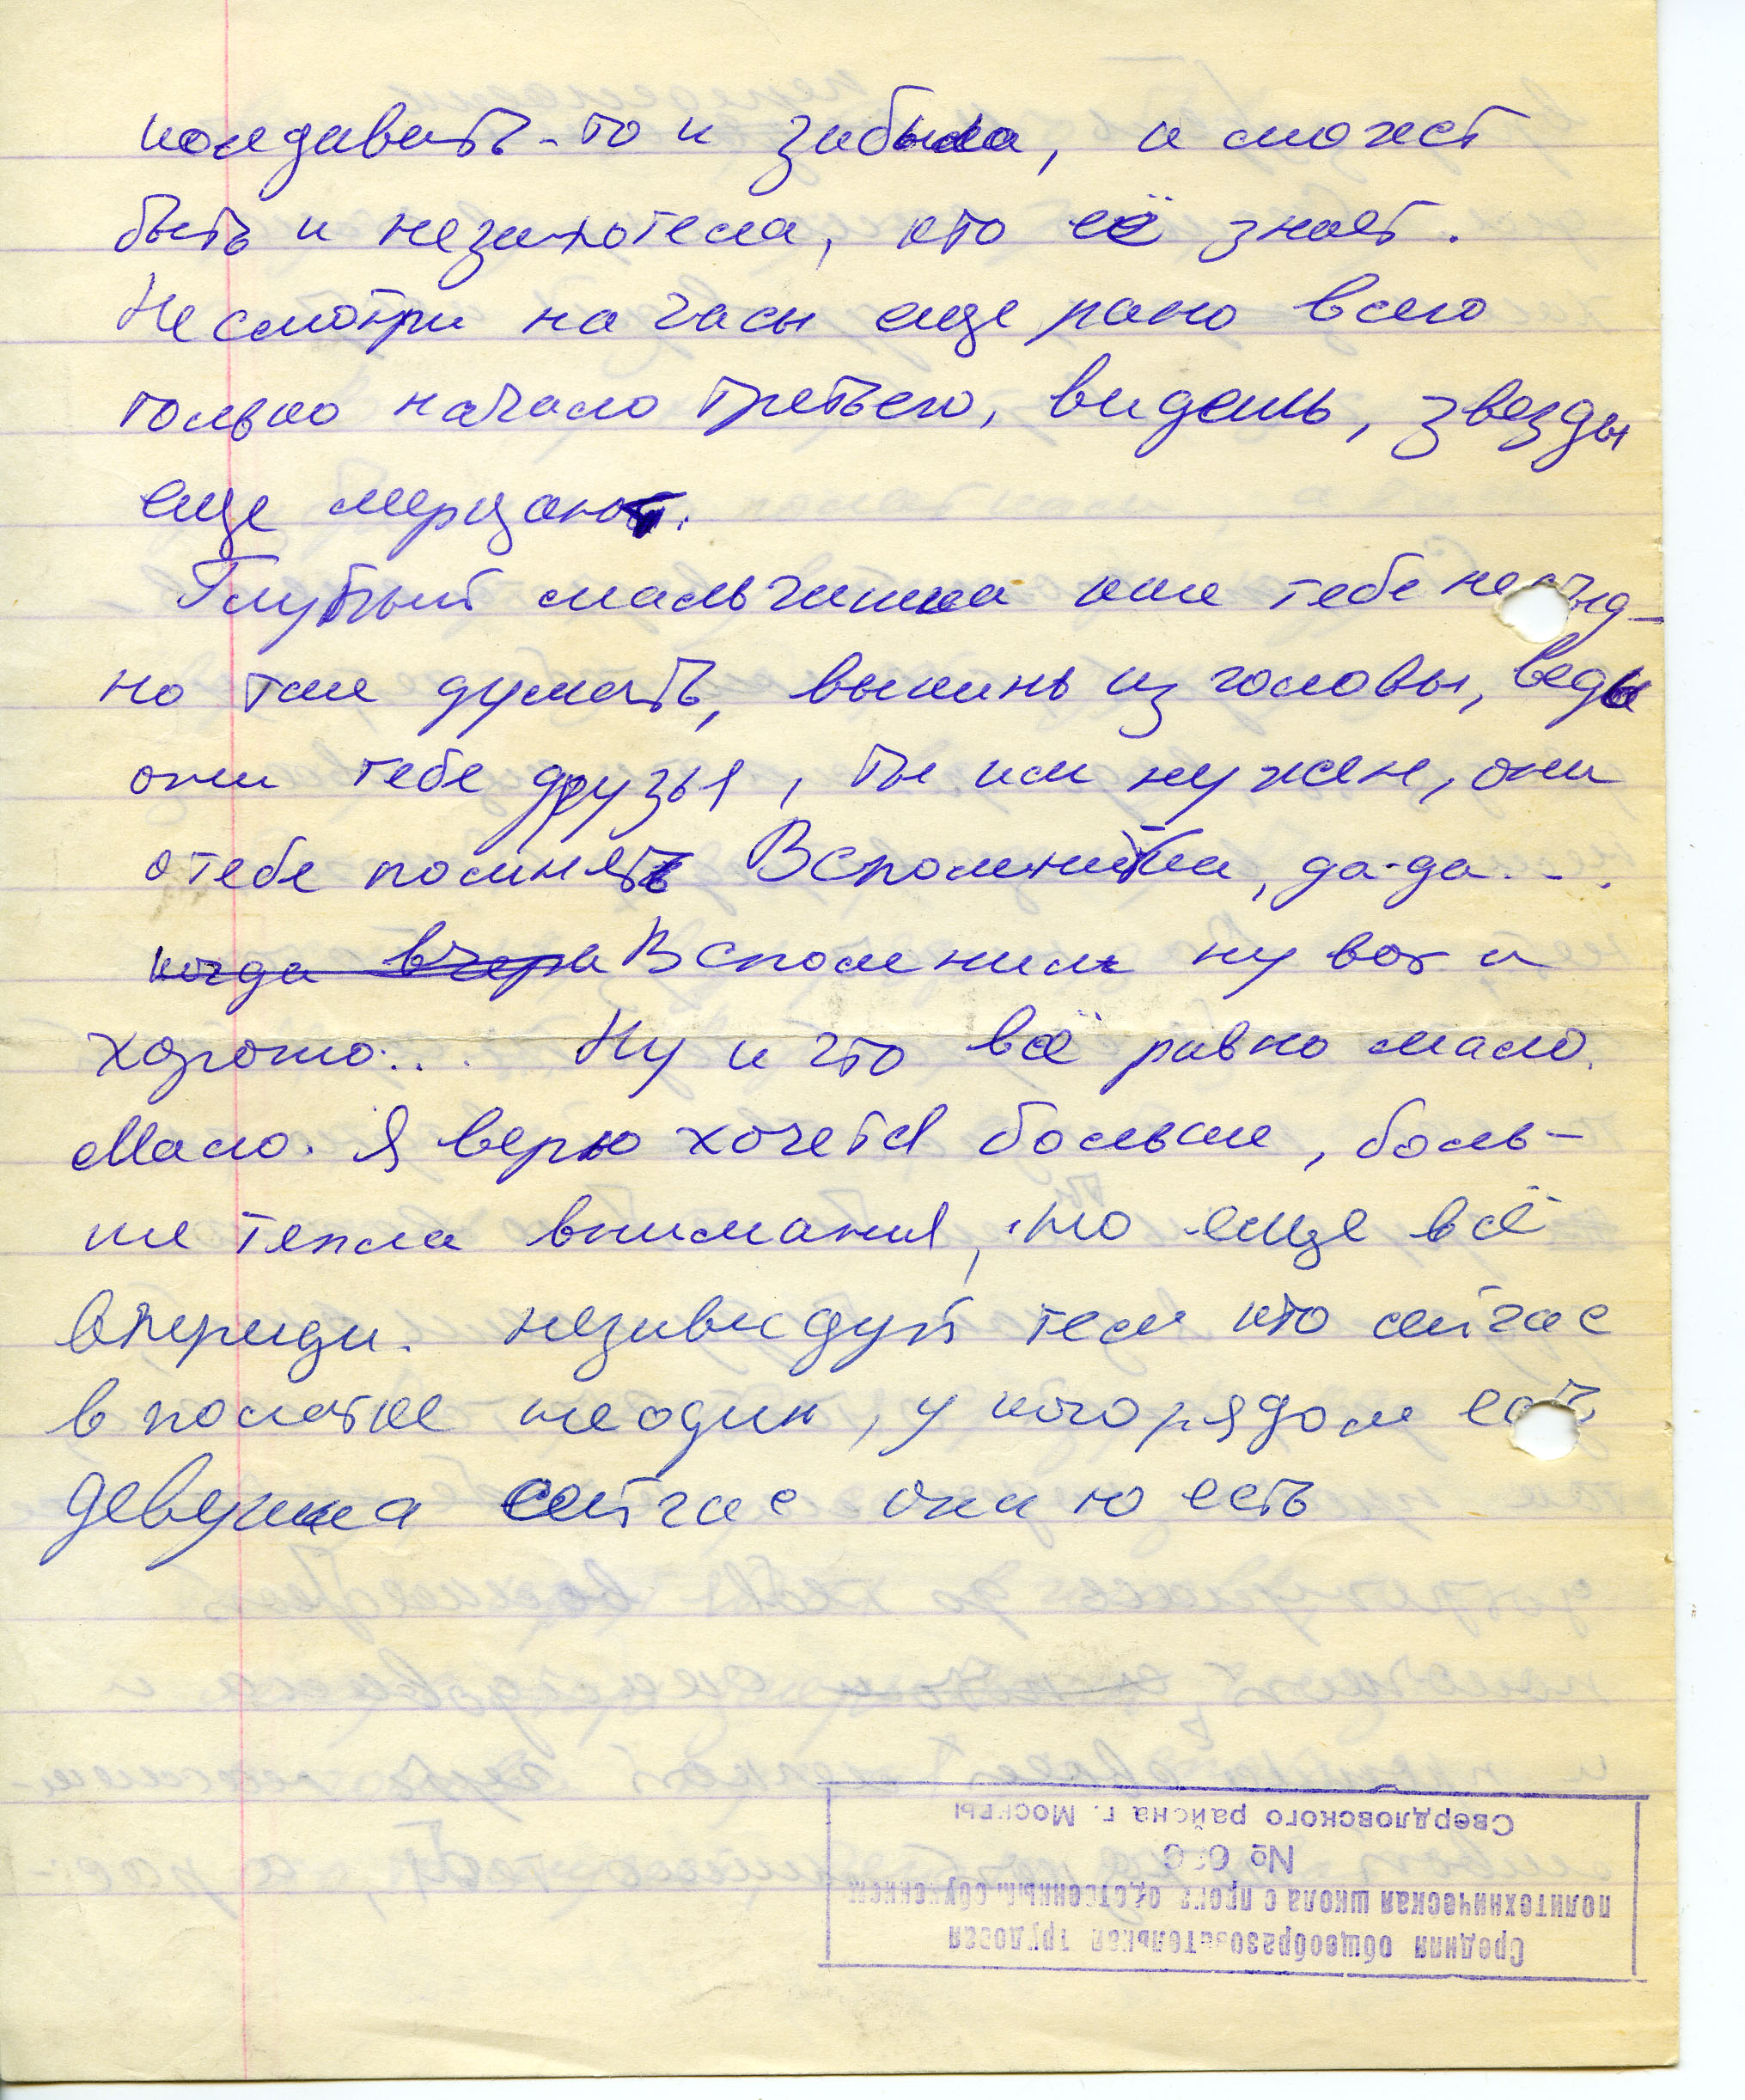 колдавать-то и забыла, а может
быть и незахотела, кто её знает.
Несмотри на часы еще рано всего
только начало третьего, видешь, звезды
еще мерцают.
Глупый мальчишка как тебе нестыд-
но так думать, выкинь из головы, ведь
они тебе друзья, ты им нужен, они
о тебе помнят Вспомни, да-да...
когда вчера Вспомнил ну вот и
хорошо... Ну и что всё равно мало.
Мало. Я верю хочется больше, боль-
ше тепла внимания, но еще всё
впереди. незавидуй тем кто сейчас
в полатке неодин, у кого рядом есть
девушка сейчас она ю есть
Средняя общеобразовательная трудовая
политехническая школа с производственным обучением
№
Свердловского района г. Москвы